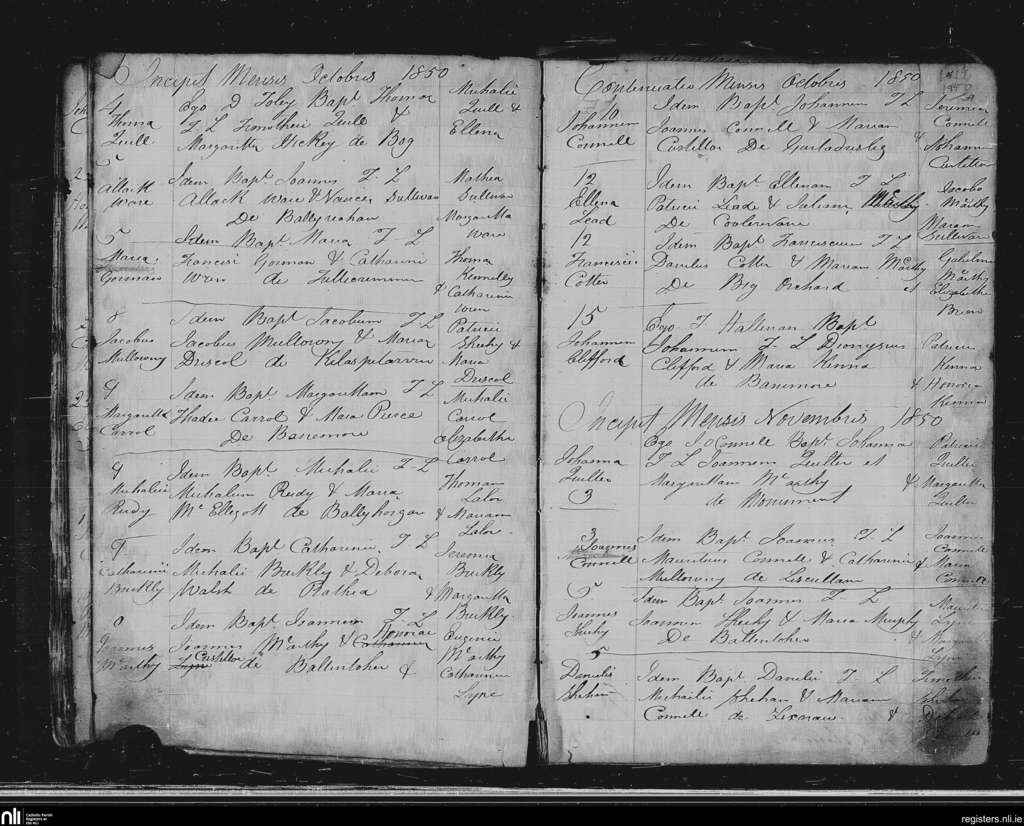 Incipit Mensis Octobris 1850
4
Thoma
Quill
Ego D Foley Bapt Thomas
F L Timothei Quill &
Margaritta Hickey de Bog
Michalii
Quill &
Ellena
5
Allack
Ware
Idem Bapt Joannis F L
Allack Ware & Nancis Sullivan
De Ballyreahan
Mathia
Sullivan
Margaritta
Ware
5
Maria
Gorman
Idem Bapt Maria F-L
Francisi Gorman & Catharini
Wren de
Thoma
Kennelly
& Catharini
Wren
8
Jacobus
Mullowny
Idem Bapt Jacobum F L
Jacobus Mullowny & Maria
Driscol de
Patricii
Sheehy &
Maria
Driscol
9
Margaritta
Carrol
Idem Bapt Margarittam F L
Thade Carrol & Maria Pierce
De Banemore
Michalii
Carrol
Elizabetha
Carrol
9
Michalii
Reidy
Idem Bapt Michalii F-L
Michalium Reidy & Maria
McElligott de Ballyhorgan
Thomam
Lalor
& Mariam
Lalor
9
Catharinii
Buckly
Idem Bapt Catharini F L
Michalii Buckly & Deborah
Walsh de Rathea
Jeremia
Buckly
& Margaritta
Buckly
Joannes
McArthy
Idem Bapt Joannem F-L
Joannis McArthy & Catharina Honoriae
Lyne Costillo de Ballentoher &
Eugenii
McArthy
Catharina
Lyne
Continuatio Mensis Octobris 1850
10
Johannem
Connell
Idem Bapt Johannem F L
Joannis Connell & Mariam
Costillo De
Jeremia
Connell
& Johanna
Costillo
12
Ellena
Lead
Idem Bapt Ellenam F L
Patricii Lead & Juliam McArthy
De Cooleraine
Jacobo
McArthy
Mariam
Sullivan
12
Francisis
Cotter
Idem Bapt Franciscum F L
Danilus Cotter & Mariam McArthy
De Big Orchard et
McArthy
Elizabetha
Brien
15
Johannem
Clifford
Ego T Hallinan Bapt
Johannem F L Dionysius
Clifford & Maria Kenna
de Banemore
Patricii
Kenna
& Honoria
Kenna
Incipit Mensis Novembris 1850
Johanna
Quilter
3
Ego J OConnell Bapt Johanna
F L Joannem Quilter et
Margarittam McArthy
de Monument
Patricii
Quilter
& Margaritta
Quilter
3
Joannes
Connell
Idem Bapt Joannis F. L
Mauritius Connell & Catharini
Mullowny de Liscullane
Joannis
Connell
& Maria
Connell
5
Joannes
Sheehy
Idem Bapt Joannis F-L
Joannem Sheehy & Maria Murphy
De Ballentoher
Lyne
&
Lyne
5
Danilii
Shehan
Idem Bapt Danilii F. L
Michailii Shehan & Mariam
Connell de Lixnaw &
nli
Catholic Parish
Registers at
the NLI
registers.nli.ie